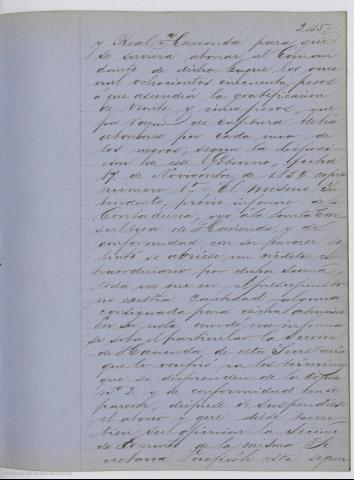 245
y Real Hacienda para que
se sirviera abonar al Coman
dante de dicho buque los once
mil ochocientos cincuenta pesos
a que ascendía la gratificacion
de veinte y cinco pesos, que
por razon de captura debía
abonarse por cada uno de
los negros, segun la disposi
cion de este Gobierno, fecha
17 de Noviembre de 1854 copia
número 1º El mismo In
tendente, prévio informe de la
Contaduria, oyó a la Junta Con
sultiva de Hacienda, y de
conformidad con su parecer so
licitó se abriese un crédito ex
traordinario por dicha suma,
toda vez que en el presupuesto
no existia cantidad alguna
consignada para dicho abono.
En su nota acordé me informa
se sobre el particular la Seccion
de Hacienda de esta Secretaria
que lo verificó en los terminos
que se desprenden de la copia
nº 2, y de conformidad con su
parecer, dispuse se suspendiese
el abono y que diese tam
bien su opinion la Seccion
de Fomento de la misma Se
cretaria. Verificólo esta segun